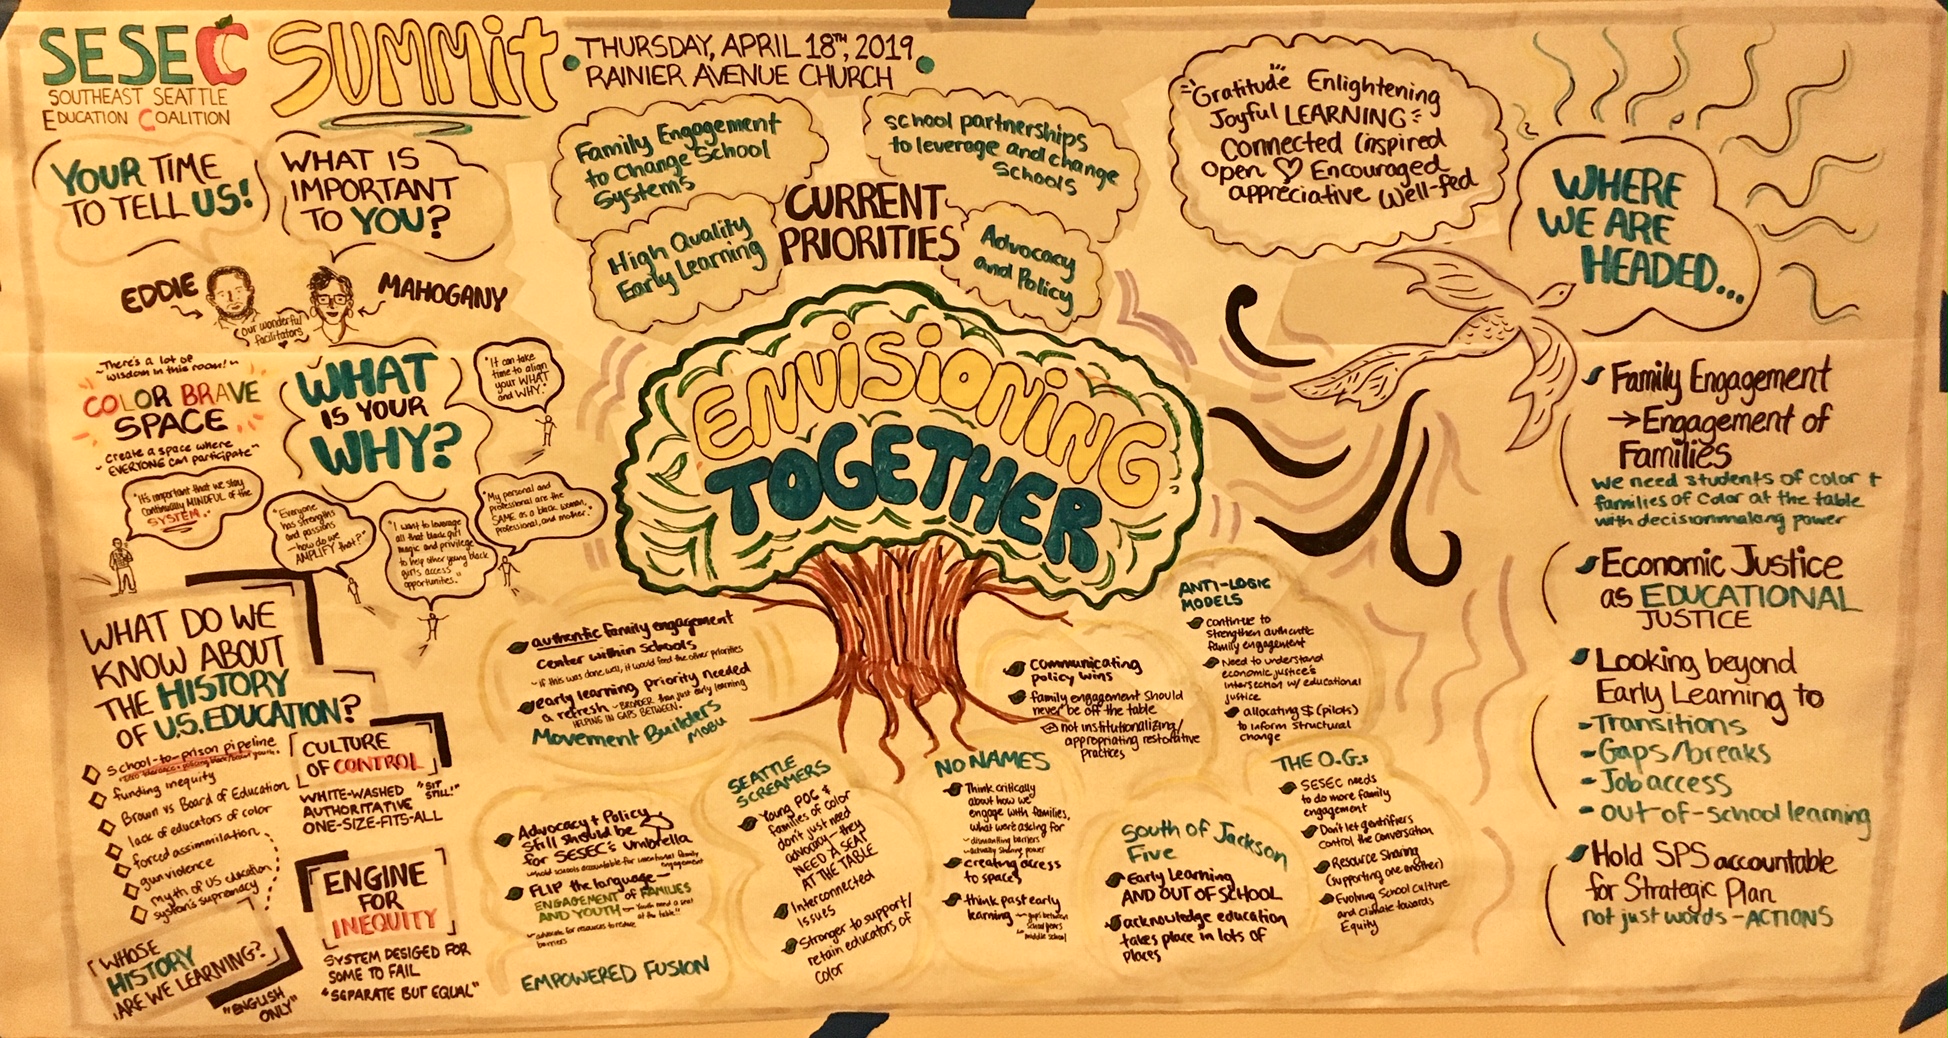 SESEC
SOUTHEAST SEATTLE
EDUCATION COALITION
SUMMit
THURSDAY, APRIL 18TH, 2019
RAINIER AVENUE CHURCH
YOUR TIME
TO TELL US!
WHAT IS
IMPORTANT
TO YOU?
EDDIE
MAHOGANY
our wonderful
facilitators
"There's a lot of
wisdom in this room!"
COLOR BRAVE
SPACE
"create a space where
EVERYONE can participate"
WHAT
IS YOUR
WHY?
"It can take
time to align
your WHAT
and WHY."
"It's important that we stay
continually MINDFUL of the
SYSTEM."
"Everyone
has strengths
and passions
- how do we
AMPLIFY that?"
"I want to leverage
all that black girl
magic and privilege
to help other young black
girls access
opportunities."
"My personal and
professional are the
SAME as a black woman,
professional, and mother."
WHAT DO WE
KNOW ABOUT
THE HISTORY
OF U.S. EDUCATION?
school-to-prison pipeline
funding inequity
Brown vs Board of Education
lack of educators of color
forced assimilation
gun violence
myth of US education
system's supremacy
CULTURE
OF CONTROL
"SIT
STILL!"
WHITE-WASHED
AUTHORITATIVE
ONE-SIZE-FITS-ALL
ENGINE
FOR
INEQUITY
SYSTEM DESIGED FOR
SOME TO FAIL
"SEPARATE BUT EQUAL"
WHOSE
HISTORY
ARE WE LEARNING?
"ENGLISH
ONLY"
Family Engagement
to Change School
Systems
school partnerships
to leverage and change
schools
CURRENT
PRIORITIES
High Quality
Early Learning
Advocacy
and Policy
ENViSiONiNG
TOGETHER
authentic family engagement
center within schools
- if this was done well, it would feed the other priorities
early learning priority needed
a refresh - BROADER than just early learning
HELPING IN GAPS BETWEEN.
Movement Builders
MOBU
Advocacy + Policy
still should be
for SESEC's umbrella
hold schools accountable for intentional family
engagement
FLIP the language -
ENGAGEMENT of FAMILIES
AND YOUTH - Youth need a seat
at the table"
advocate for resources to reduce
barriers
EMPOWERED FUSION
SEATTLE
SCREAMERS
Young POC &
families of color
don't just need
advocacy - they
NEED A SEAT
AT THE TABLE
Interconnected
issues
Stronger to support/
retain educators of
color
NO NAMES
Think critically
about how we
engage with families,
what we're asking for
- dismantling barriers
- actually sharing power
creating access
to spaces
think past early
learning - gaps between
school years
- middle school
communicating
policy wins
family engagement should
never be off the table
not institutionalizing/
appropriating restorative
practices
ANTI-LOGIC
MODELS
continue to
strengthen authentic
family engagement
Need to understand
economic justice's
intersection w/ educational
justice
allocating $ (pilots)
to inform structural
change
South of Jackson
Five
Early Learning
AND OUT OF SCHOOL
acknowledge education
takes place in lots of
places
THE O.G.s
SESEC needs
to do more family
engagement
Don't let gentrifiers
control the conversation
Resource Sharing
(supporting one another)
Evolving School culture
and climate towards
Equity
Gratitude Enlightening
Joyful LEARNING
Connected inspired
open Encouraged
appreciative Well-fed
WHERE
WE ARE
HEADED...
Family Engagement
→ Engagement of
Families
we need students of color +
families of color at the table
with decisionmaking power
Economic Justice
as EDUCATIONAL
JUSTICE
Looking beyond
Early Learning to
- Transitions
- Gaps/breaks
- Job access
- out-of-school learning
Hold SPS accountable
for Strategic Plan
not just words - ACTIONS